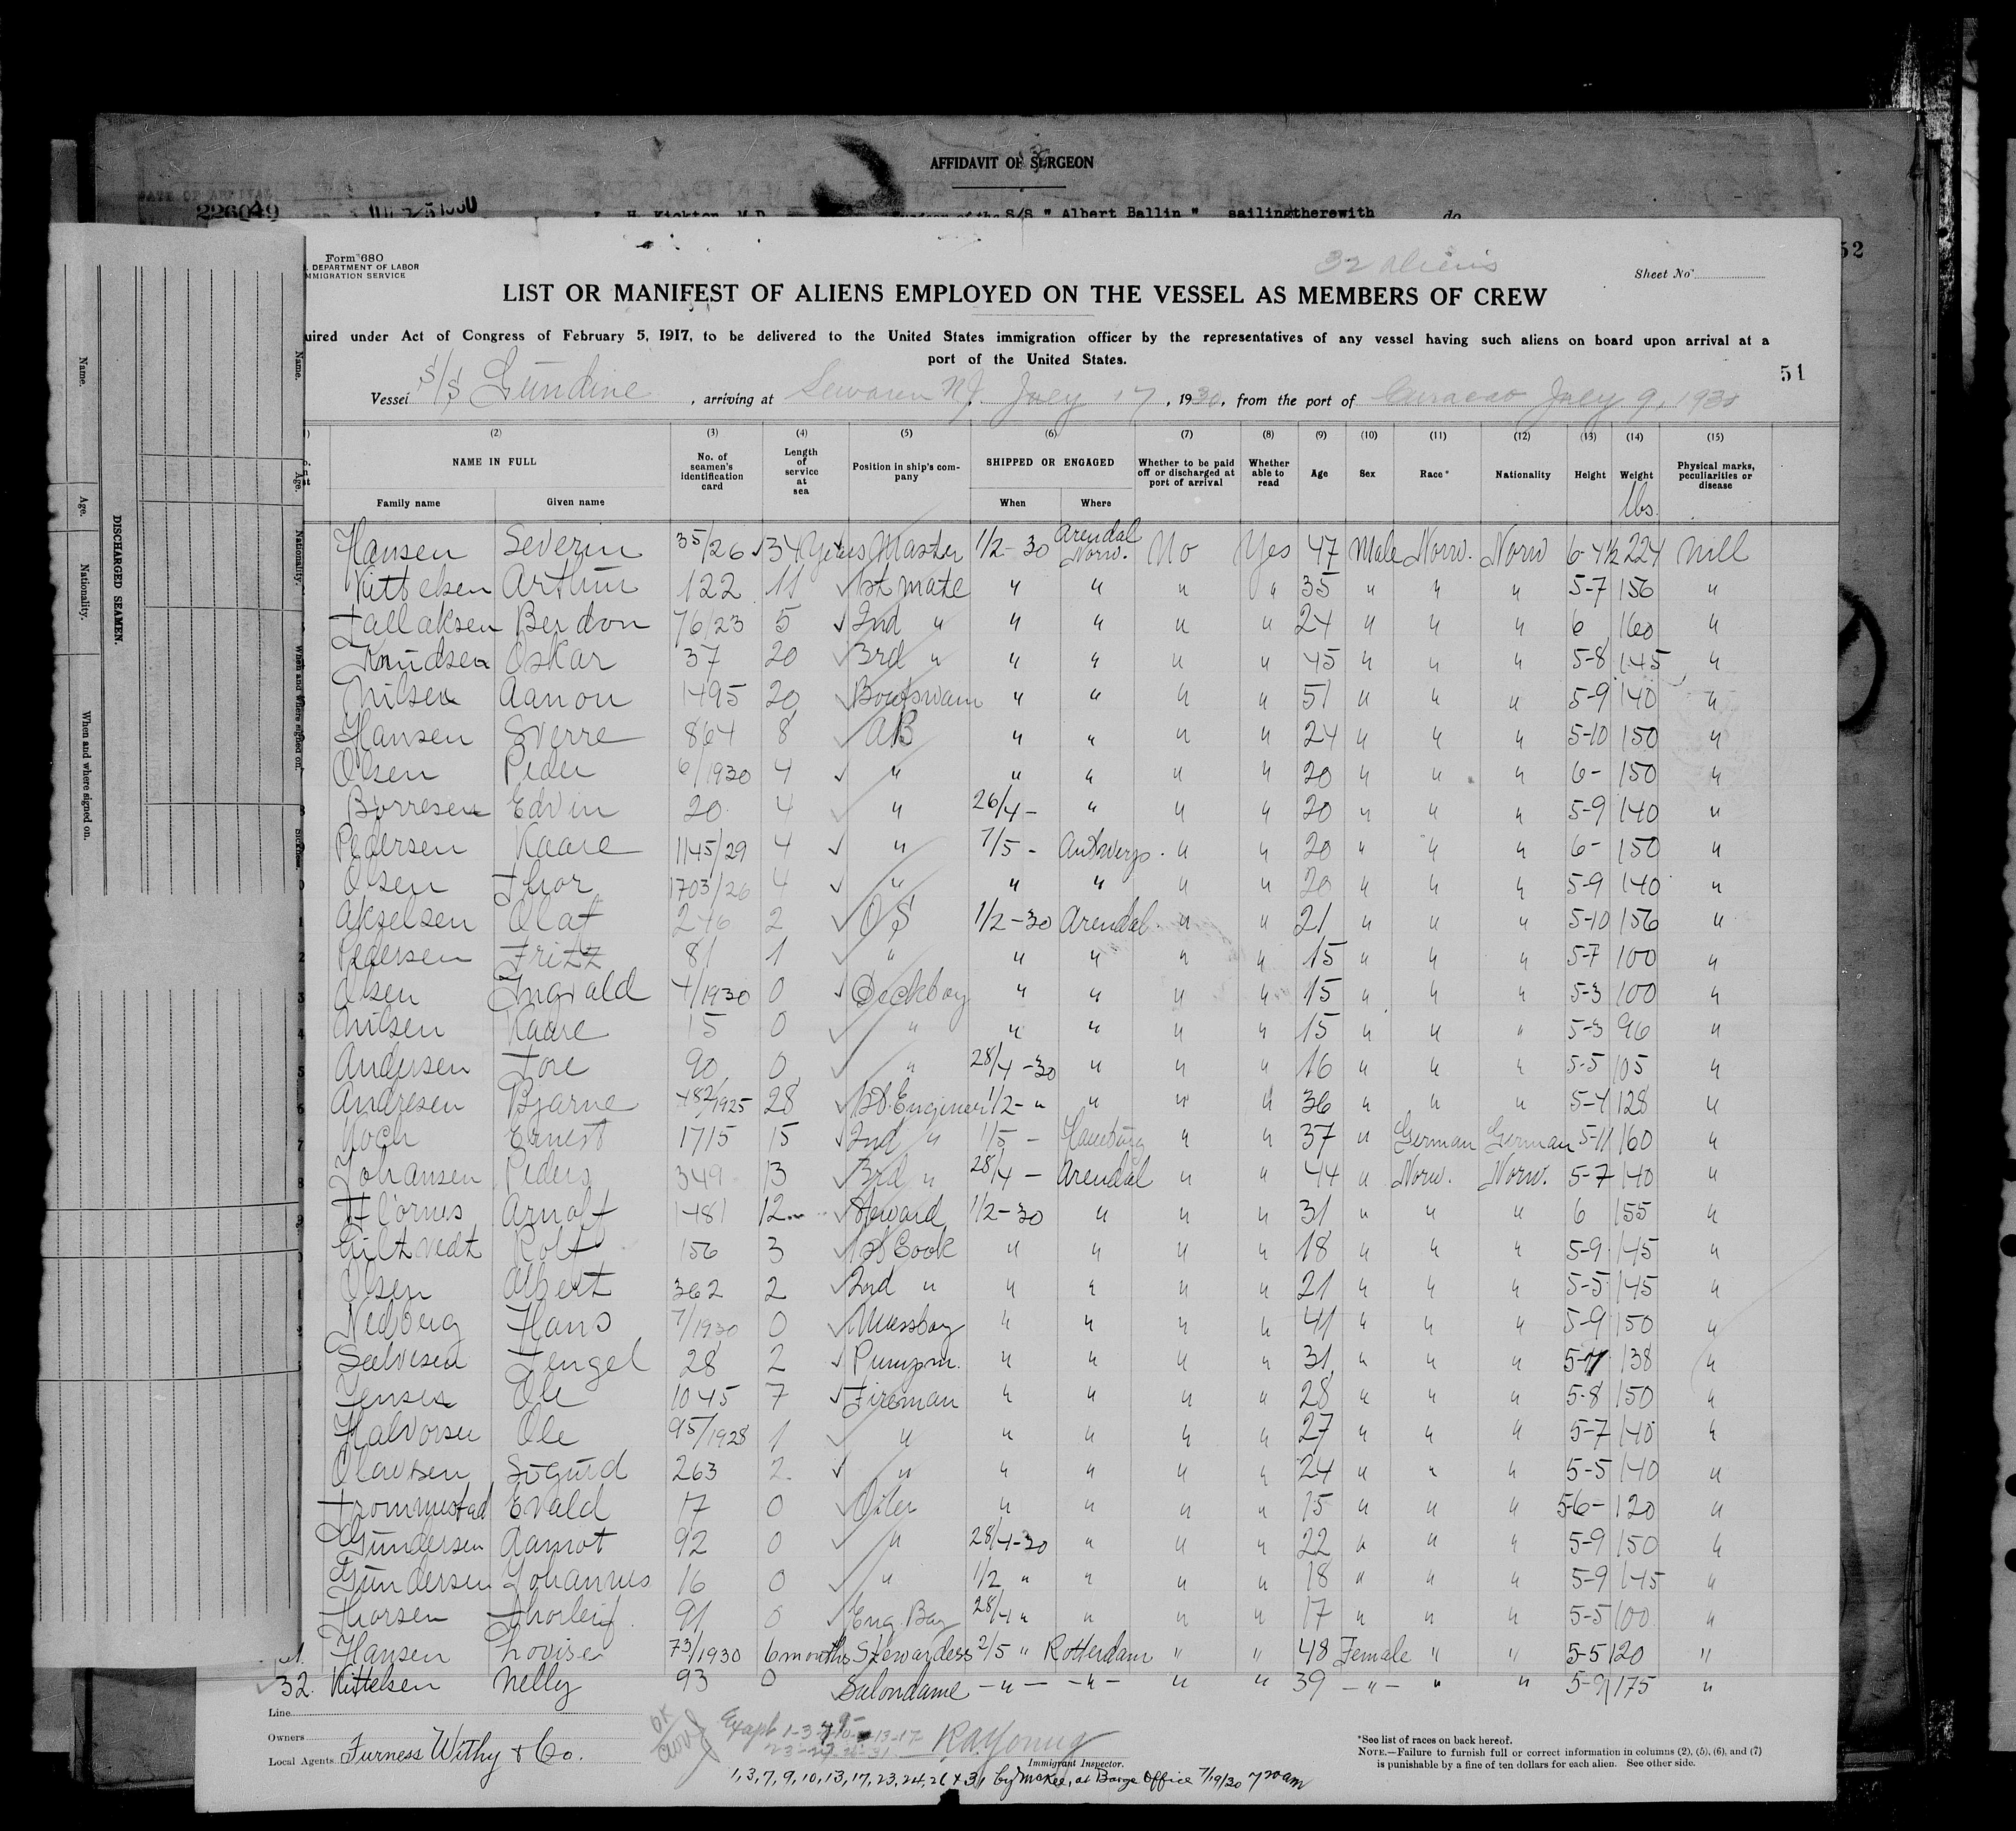 AFFIDAVIT OF SURGEON
226049
H. Kickton, M.D. surgeon of the S/S " Albert Ballin " sailing therewith do
52
Form 680
DEPARTMENT OF LABOR
IMMIGRATION SERVICE
32 aliens
Sheet No
LIST OR MANIFEST OF ALIENS EMPLOYED ON THE VESSEL AS MEMBERS OF CREW
uired under Act of Congress of February 5, 1917, to be delivered to the United States immigration officer by the representatives of any vessel having such aliens on board upon arrival at a
port of the United States.
51
Vessel S/S Gundine, arriving at Sewaren N.J. July 17, 1930, from the port of Curacao July 9, 1930
(2) (3) (4) (5) (6) (7) (8) (9) (10) (11) (12) (13) (14) (15)
NAME IN FULL No. of seamen's identification card Length of service at sea Position in ship's company SHIPPED OR ENGAGED Whether to be paid off or discharged at port of arrival Whether able to read Age Sex Race* Nationality Height Weight Physical marks, peculiarities or disease
Family name Given name When Where lbs.
Hansen Severin 35/26 34 Years Master 1/2-30 Arendal Norw. No Yes 47 Male Norw. Norw 6-4½ 224 Nill
Kittelsen Arthur 122 11 1st mate " " " " 35 " " " 5-7 156 "
Tallaksen Berdon 76/23 5 2nd " " " " " 24 " " " 6 160 "
Knudsen Oskar 37 20 3rd " " " " " 45 " " " 5-8 145 "
Nilsen Aanon 1495 20 Boatswain " " " " 51 " " " 5-9 140 "
Hansen Sverre 864 8 AB " " " " 24 " " " 5-10 150 "
Olsen Peder 6/1930 4 " " " " " 20 " " " 6- 150 "
Børresen Edvin 20 4 " 26/4- " " " 20 " " " 5-9 140 "
Pedersen Kaare 1145/29 4 " 7/5- Antwerp. " " 20 " " " 6- 150 "
Olsen Thor 1703/26 4 " " " " " 20 " " " 5-9 140 "
Akselsen Olaf 246 2 OS 1/2-30 Arendal " " 21 " " " 5-10 156 "
Pedersen Fritz 81 1 " " " " " 15 " " " 5-7 100 "
Olsen Ingvald 4/1930 0 Deckboy " " " " 15 " " " 5-3 100 "
Nilsen Kaare 15 0 " " " " " 15 " " " 5-3 96 "
Andersen Tore 90 0 " 28/4-30 " " " 16 " " " 5-5 105 "
Andresen Bjarne 482/1925 28 1st Engineer 1/2- " " " " 36 " " " 5-4 128 "
Koch Ernest 1715 15 2nd " 1/5- Hamburg " " 37 " German German 5-11 160 "
Johansen Peders 349 13 3rd " 28/4- Arendal " " 44 " Norw. Norw. 5-7 140 "
Arnolf 1481 12 Steward 1/2-30 " " " 31 " " " 6 155 "
Giltvedt Rolf 156 3 1st Cook " " " " 18 " " " 5-9 145 "
Olsen Albert 362 2 2nd " " " " " 21 " " " 5-5 145 "
Nedberg Hans 7/1930 0 Messboy " " " " 41 " " " 5-9 150 "
Salvesen Tengel 28 2 Pumpm. " " " " 31 " " " 138 "
Jensen Ole 1045 7 Fireman " " " " 28 " " " 5-8 150 "
Halvorsen Ole 95/1928 1 " " " " " 27 " " " 5-7 140 "
Olavsen Sigurd 263 2 " " " " " 24 " " " 5-5 140 "
Trommestad Evald 17 0 Oiler " " " " 15 " " " 5-6- 120 "
Gundersen Aamot 92 0 " 28/4-30 " " " 22 " " " 5-9 150 "
Gundersen Johannes 16 0 " 1/2 " " " " 18 " " " 5-9 145 "
Thorsen Thorleif 91 0 Eng. Boy 28/4 " " " " 17 " " " 5-5 100 "
Hansen Lovise 73/1930 6 months Stewardess 2/5 " Rotterdam " " 48 Female " " 5-5 120 "
32. Kittelsen Nelly 93 0 Salondame -"- -"- " " 39 -"- " " 175 "
Line
Owners
Local Agents Furness Withy & Co.
R.A. Young
Immigrant Inspector.
1, 3, 7, 9, 10, 13, 17, 23, 24, 26 & 31 by McKee, at Barge Office 7/19/30
*See list of races on back hereof.
NOTE.—Failure to furnish full or correct information in columns (2), (5), (6), and (7)
is punishable by a fine of ten dollars for each alien. See other side.
DISCHARGED SEAMEN.
Name. Age. Nationality. When and where signed on.
Name. Age. Nationality. When and Where signed on.